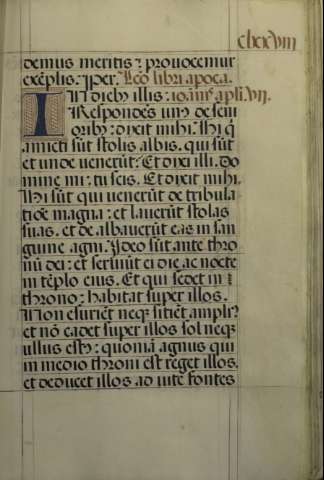 clxxviii
demus meritis : prouocemur
exēplis. Iper. Leo libri apoca.
In dieb9 illis : ioāniſ apłi. vii.
Respondēs un9 de seni
orib9 : dixit mihi. Hi q̄
amicti sūt stolis albis. qui sūt
et unde uenerūt? Et dixi illi. Do
mine mi : tu scis. Et dixit mihi.
Hi sūt qui uenerūt de tribula
tiōe magna : et lauerūt stolas
suas. et de albauerūt eas in san
guine agni. Ideo sūt ante thro
nū dei : et seruiūt ei die ac nocte
in tēplo eius. Et qui sedet in
throno : habitat super illos.
Non esurient neq3 sitient ampli9
et nō cadet super illos sol neq3
ullus est9 : quoniā agnus qui
in medio throni est reget illos.
et deducet illos ad uite fontes